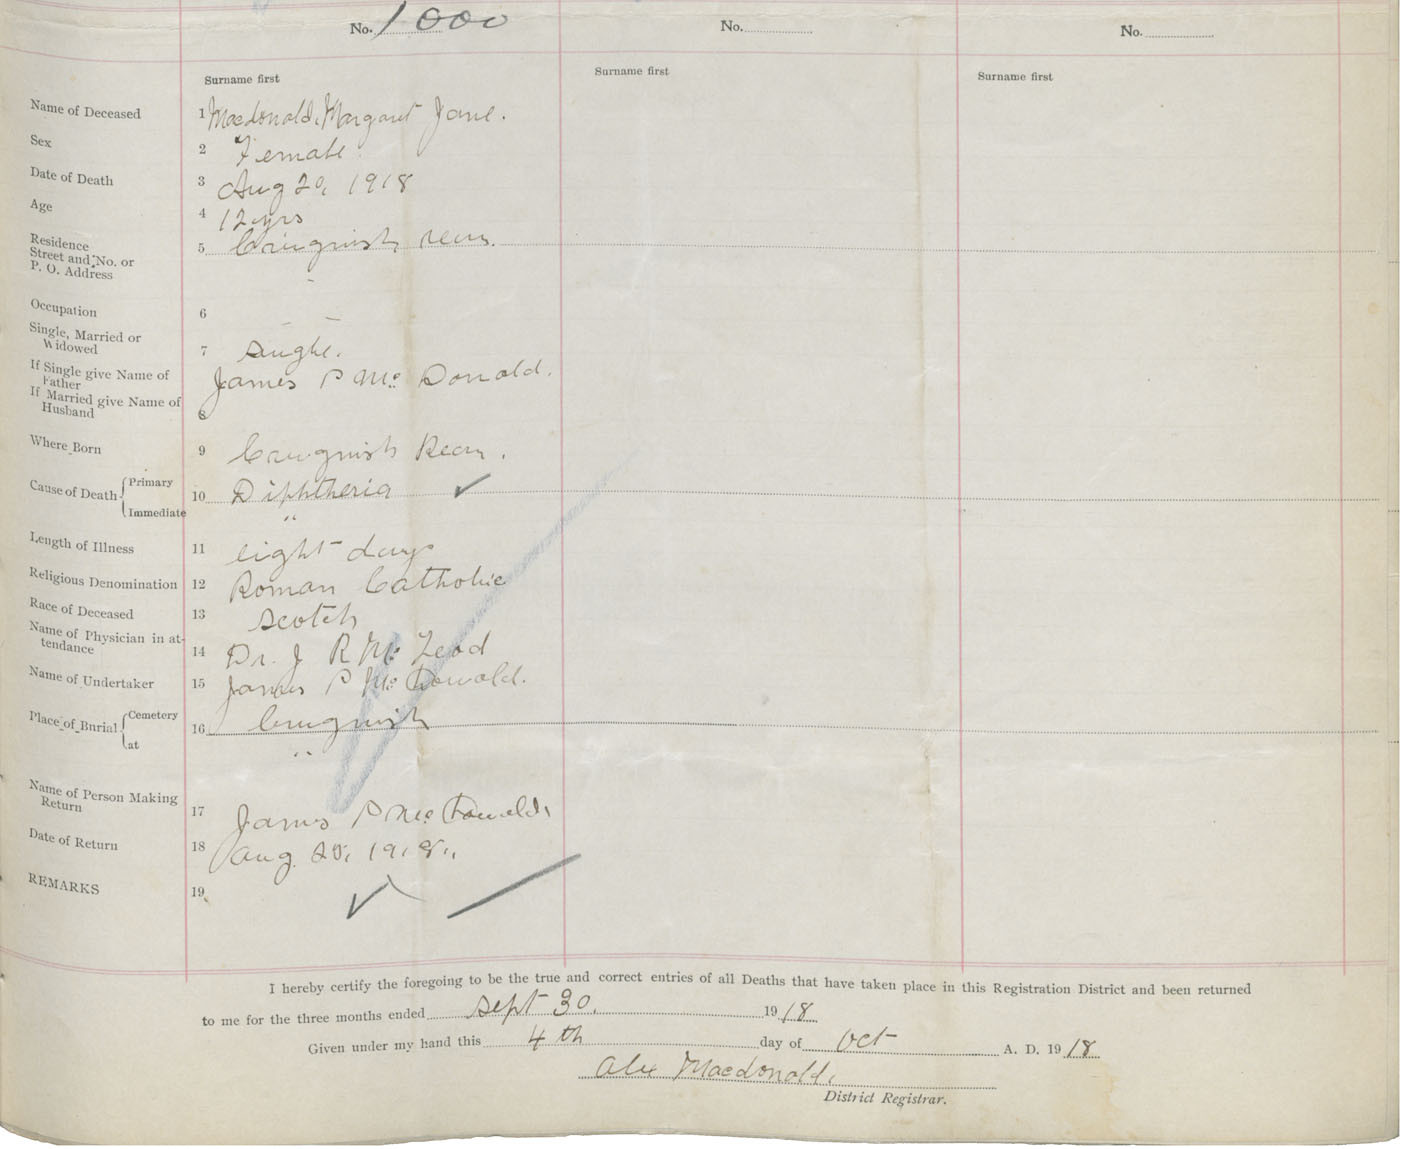 No. 1000 No. No.
Surname first Surname first Surname first
Name of Deceased 1 Macdonald, Margaret Jane.
Sex 2 Female
Date of Death 3 Aug 20, 1918
Age 4 12 yrs
Residence
Street and No. or
P. O. Address 5 rear.
Occupation 6 – –
Single, Married or
Widowed 7 Single.
If Single give Name of
Father James P Mc Donald.
If Married give Name of
Husband 8
Where Born 9 Rear.
Cause of Death { Primary 10 Diphtheria ✓
Immediate "
Length of Illness 11 eight days
Religious Denomination 12 Roman Catholic
Race of Deceased 13 Scotch
Name of Physician in at-
tendance 14 Dr. J R Mc Leod
Name of Undertaker 15 James P Mc Donald.
Place of Burial { Cemetery 16
at "
Name of Person Making
Return 17 James P Mc Donald
Date of Return 18 Aug 1918
REMARKS 19
I hereby certify the foregoing to be the true and correct entries of all Deaths that have taken place in this Registration District and been returned
to me for the three months ended Sept 30. 1918
Given under my hand this 4th day of Oct A. D. 1918
Alex Macdonald.
District Registrar.